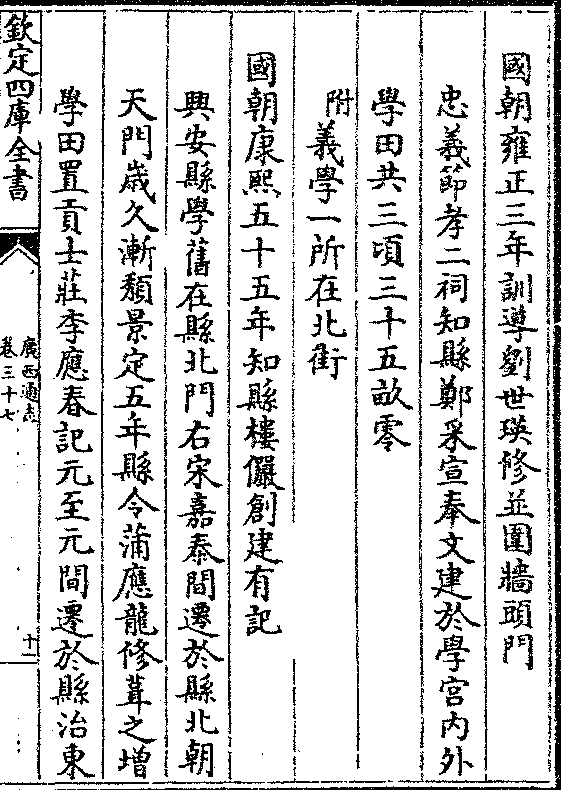 國朝雍正三年訓導劉世瑛修並圍牆頭門
忠義節孝二祠知縣鄭采宣奉文建於學宫内外
學田共三頃三十五畝零
附義學一所在北街
國朝康熙五十五年知縣樓儼創建有記
興安縣學舊在縣北門右宋嘉泰間遷於縣北朝
天門歲久漸頽景定五年縣令蒲應龍修葺之增
學田置貢士莊李應春記元至元間遷於縣治東
欽定四庫全書
廣西通志
卷三十七
十一